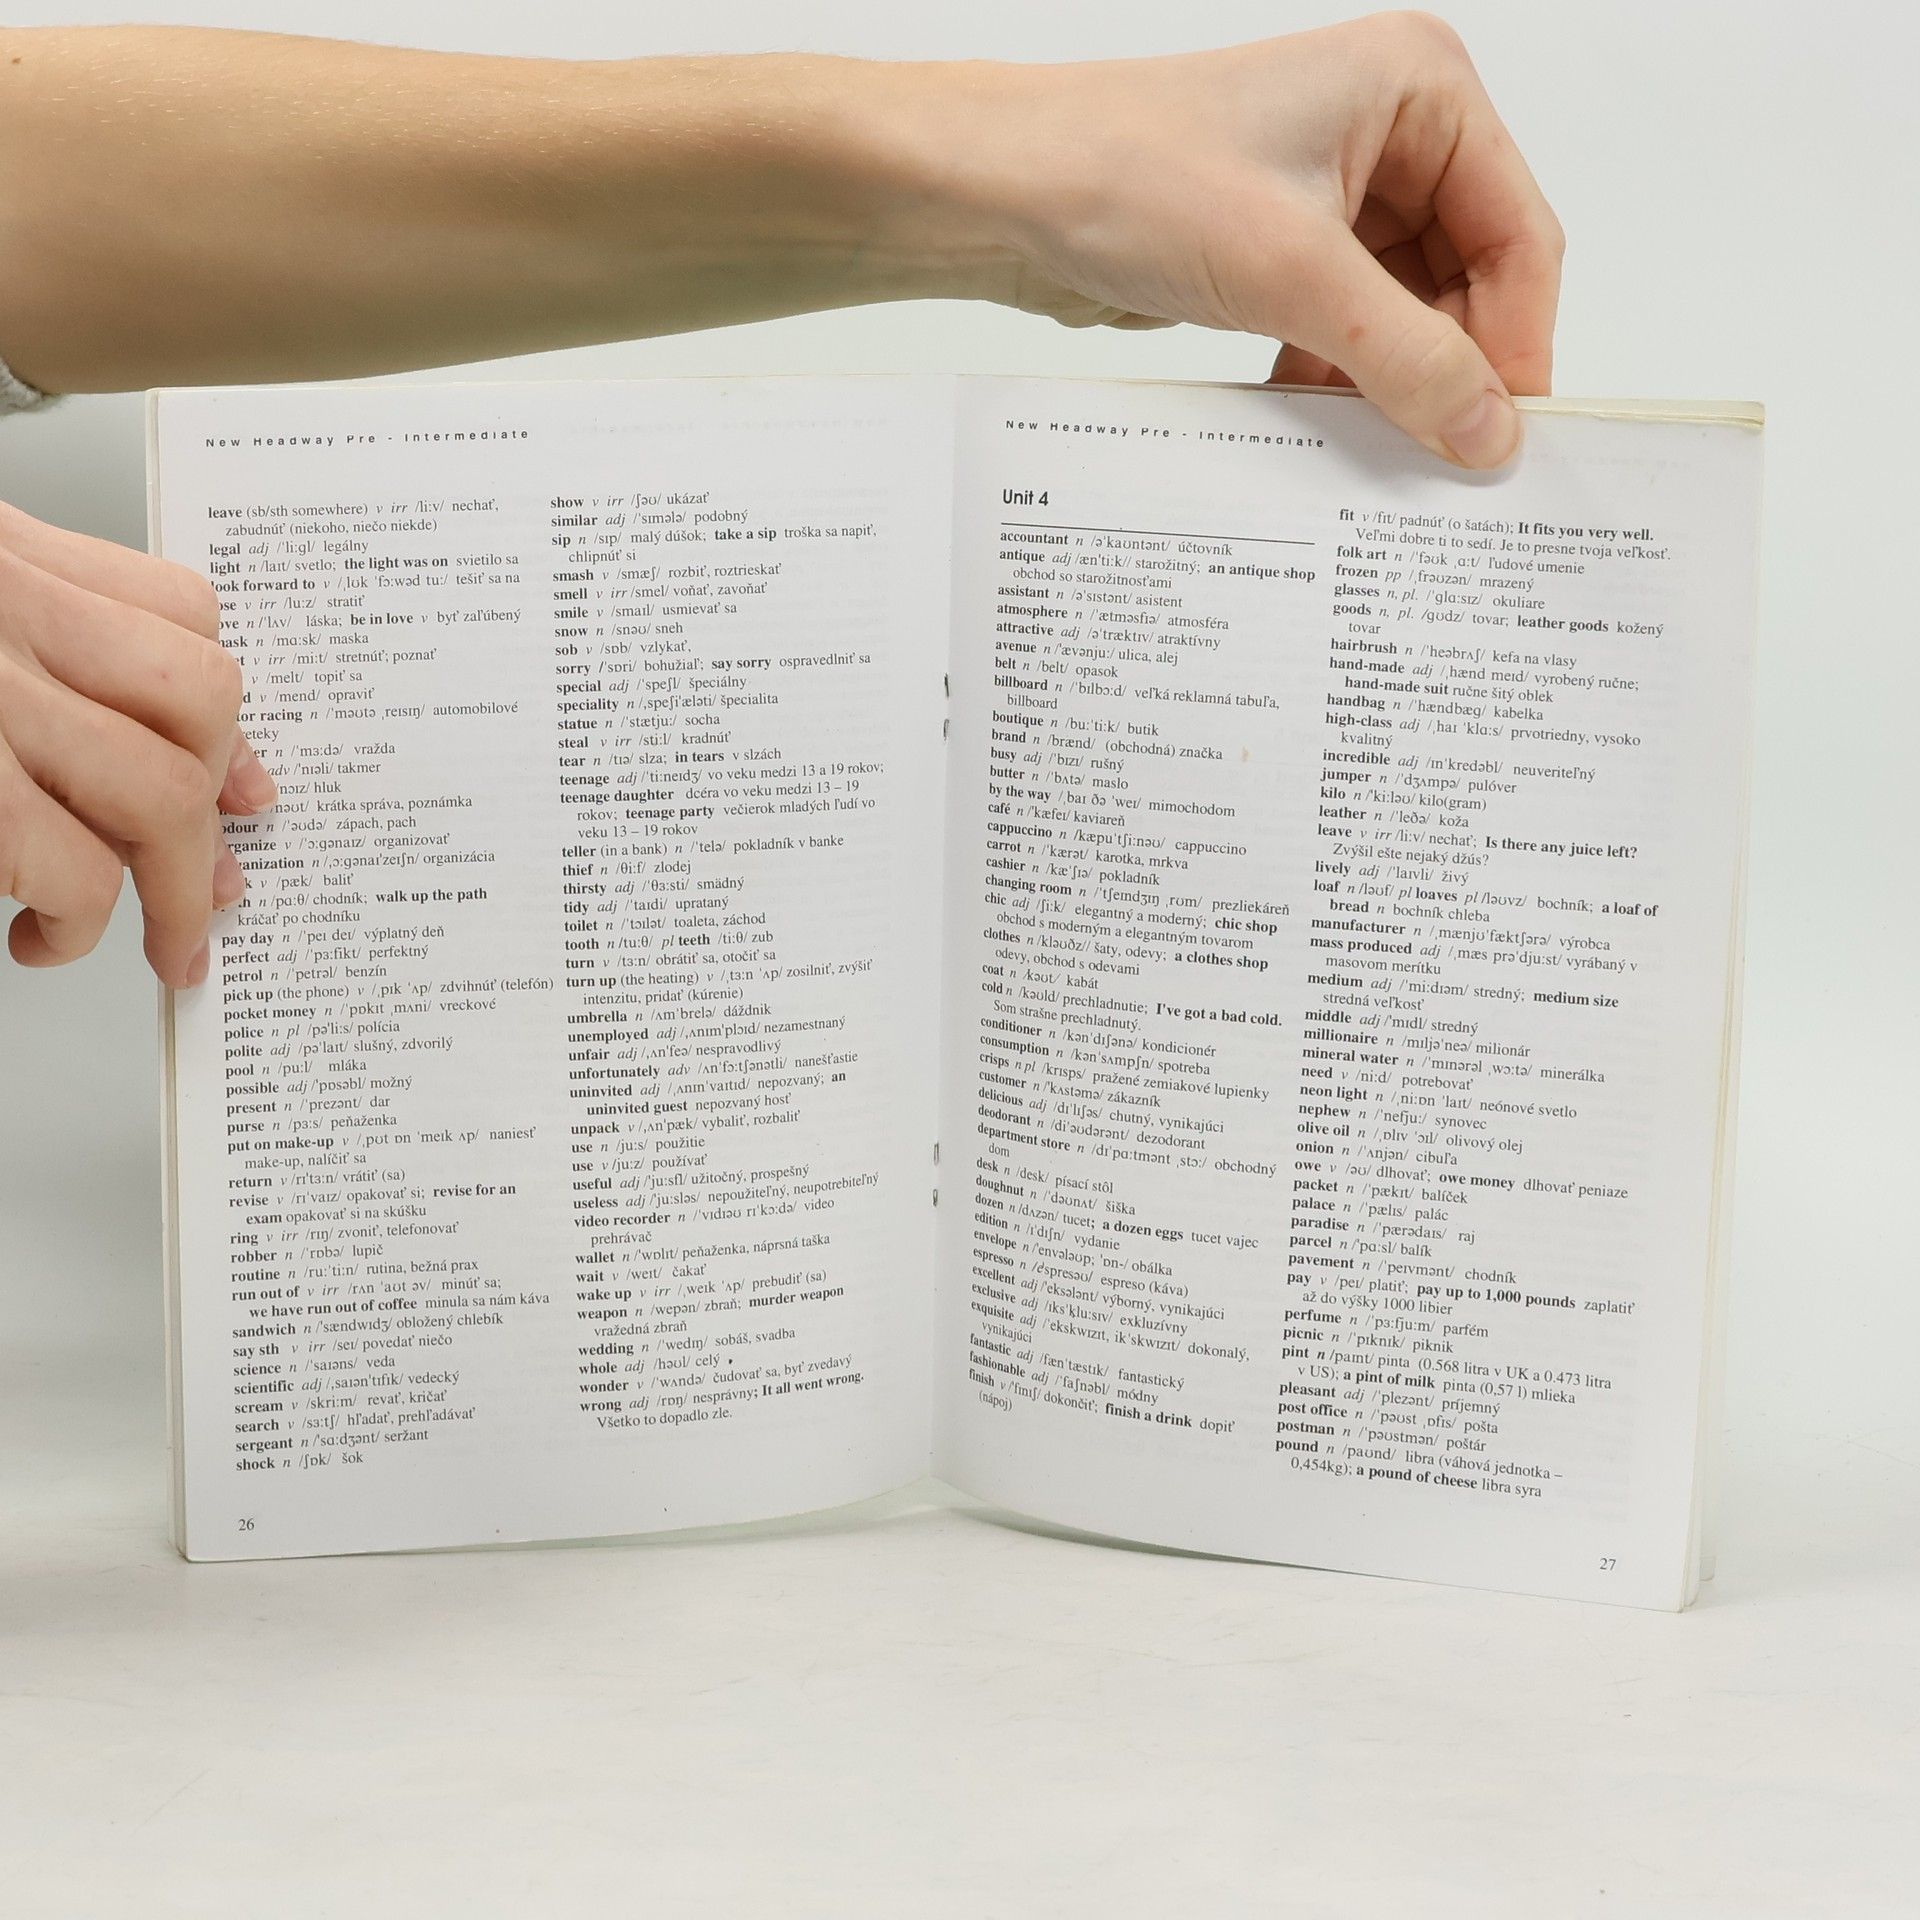 New Headway Pre - Intermediate
leave (sb/sth somewhere) v irr /liːv/ nechať,
zabudnúť (niekoho, niečo niekde)
legal adj /ˈliːgl/ legálny
light n /laɪt/ svetlo; the light was on svietilo sa
look forward to v /ˌlʊk ˈfɔːwəd tuː/ tešiť sa na
v irr /luːz/ stratiť
n /ˈlʌv/ láska; be in love v byť zaľúbený
n /mɑːsk/ maska
v irr /miːt/ stretnúť; poznať
v /melt/ topiť sa
v /mend/ opraviť
racing n /ˈməʊtə ˌreɪsɪŋ/ automobilové
n /ˈmɜːdə/ vražda
adv /ˈnɪəli/ takmer
/nɔɪz/ hluk
/nəʊt/ krátka správa, poznámka
odour n /ˈəʊdə/ zápach, pach
organize v /ˈɔːgənaɪz/ organizovať
n /ˌɔːgənaɪˈzeɪʃn/ organizácia
v /pæk/ baliť
n /pɑːθ/ chodník; walk up the path
kráčať po chodníku
pay day n /ˈpeɪ deɪ/ výplatný deň
perfect adj /ˈpɜːfɪkt/ perfektný
petrol n /ˈpetrəl/ benzín
pick up (the phone) v /ˌpɪk ˈʌp/ zdvihnúť (telefón)
pocket money n /ˈpɒkɪt ˌmʌni/ vreckové
police n pl /pəˈliːs/ polícia
polite adj /pəˈlaɪt/ slušný, zdvorilý
pool n /puːl/ mláka
possible adj /ˈpɒsəbl/ možný
present n /ˈprezənt/ dar
purse n /pɜːs/ peňaženka
put on make-up v /ˌpʊt ɒn ˈmeɪk ʌp/ naniesť
make-up, nalíčiť sa
return v /rɪˈtɜːn/ vrátiť (sa)
revise v /rɪˈvaɪz/ opakovať si; revise for an
exam opakovať si na skúšku
ring v irr /rɪŋ/ zvoniť, telefonovať
robber n /ˈrɒbə/ lupič
routine n /ruːˈtiːn/ rutina, bežná prax
run out of v irr /rʌn ˈaʊt əv/ minúť sa;
we have run out of coffee minula sa nám káva
sandwich n /ˈsændwɪdʒ/ obložený chlebík
say sth v irr /seɪ/ povedať niečo
science n /ˈsaɪəns/ veda
scientific adj /ˌsaɪənˈtɪfɪk/ vedecký
scream v /skriːm/ revať, kričať
search v /sɜːtʃ/ hľadať, prehľadávať
sergeant n /ˈsɑːdʒənt/ seržant
shock n /ʃɒk/ šok
show v irr /ʃəʊ/ ukázať
similar adj /ˈsɪmələ/ podobný
sip n /sɪp/ malý dúšok; take a sip troška sa napiť,
chlipnúť si
smash v /smæʃ/ rozbiť, roztrieskať
smell v irr /smel/ voňať, zavoňať
smile v /smaɪl/ usmievať sa
snow n /snəʊ/ sneh
sob v /sɒb/ vzlykať,
sorry /ˈsɒri/ bohužiaľ; say sorry ospravedlniť sa
special adj /ˈspeʃl/ špeciálny
speciality n /ˌspeʃiˈæləti/ špecialita
statue n /ˈstætjuː/ socha
steal v irr /stiːl/ kradnúť
tear n /tɪə/ slza; in tears v slzách
teenage adj /ˈtiːneɪdʒ/ vo veku medzi 13 a 19 rokov;
teenage daughter dcéra vo veku medzi 13 – 19
rokov; teenage party večierok mladých ľudí vo
veku 13 – 19 rokov
teller (in a bank) n /ˈtelə/ pokladník v banke
thief n /θiːf/ zlodej
thirsty adj /ˈθɜːsti/ smädný
tidy adj /ˈtaɪdi/ uprataný
toilet n /ˈtɔɪlət/ toaleta, záchod
tooth n /tuːθ/ pl teeth /tiːθ/ zub
turn v /tɜːn/ obrátiť sa, otočiť sa
turn up (the heating) v /ˌtɜːn ˈʌp/ zosilniť, zvýšiť
intenzitu, pridať (kúrenie)
umbrella n /ʌmˈbrelə/ dáždnik
unemployed adj /ˌʌnɪmˈplɔɪd/ nezamestnaný
unfair adj /ˌʌnˈfeə/ nespravodlivý
unfortunately adv /ʌnˈfɔːtʃənətli/ nanešťastie
uninvited adj /ˌʌnɪnˈvaɪtɪd/ nepozvaný; an
uninvited guest nepozvaný hosť
unpack v /ˌʌnˈpæk/ vybaliť, rozbaliť
use n /juːs/ použitie
use v /juːz/ používať
useful adj /ˈjuːsfl/ užitočný, prospešný
useless adj /ˈjuːsləs/ nepoužiteľný, neupotrebiteľný
video recorder n /ˈvɪdɪəʊ rɪˈkɔːdə/ video
prehrávač
wallet n /ˈwɒlɪt/ peňaženka, náprsná taška
wait v /weɪt/ čakať
wake up v irr /ˌweɪk ˈʌp/ prebudiť (sa)
weapon n /wepən/ zbraň; murder weapon
vražedná zbraň
wedding n /ˈwedɪŋ/ sobáš, svadba
whole adj /həʊl/ celý
wonder v /ˈwʌndə/ čudovať sa, byť zvedavý
wrong adj /rɒŋ/ nesprávny; It all went wrong.
Všetko to dopadlo zle.
26
New Headway Pre - Intermediate
Unit 4
accountant n /əˈkaʊntənt/ účtovník
antique adj /ænˈtiːk// starožitný; an antique shop
obchod so starožitnosťami
assistant n /əˈsɪstənt/ asistent
atmosphere n /ˈætməsfɪə/ atmosféra
attractive adj /əˈtræktɪv/ atraktívny
avenue n /ˈævənjuː/ ulica, alej
belt n /belt/ opasok
billboard n /ˈbɪlbɔːd/ veľká reklamná tabuľa,
billboard
boutique n /buːˈtiːk/ butik
brand n /brænd/ (obchodná) značka
busy adj /ˈbɪzɪ/ rušný
butter n /ˈbʌtə/ maslo
by the way /ˌbaɪ ðə ˈweɪ/ mimochodom
café n /ˈkæfeɪ/ kaviareň
cappuccino n /kæpuˈtʃiːnəʊ/ cappuccino
carrot n /ˈkærət/ karotka, mrkva
cashier n /kæˈʃɪə/ pokladník
changing room n /ˈtʃeɪndʒɪŋ ˌrʊm/ prezliekáreň
chic adj /ʃiːk/ elegantný a moderný; chic shop
obchod s moderným a elegantným tovarom
clothes n /kləʊðz// šaty, odevy; a clothes shop
odevy, obchod s odevami
coat n /kəʊt/ kabát
cold n /kəʊld/ prechladnutie; I've got a bad cold.
Som strašne prechladnutý.
conditioner n /kənˈdɪʃənə/ kondicionér
consumption n /kənˈsʌmpʃn/ spotreba
crisps n pl /krɪsps/ pražené zemiakové lupienky
customer n /ˈkʌstəmə/ zákazník
delicious adj /dɪˈlɪʃəs/ chutný, vynikajúci
deodorant n /diˈəʊdərənt/ dezodorant
department store n /dɪˈpɑːtmənt ˌstɔː/ obchodný
dom
desk n /desk/ písací stôl
doughnut n /ˈdəʊnʌt/ šiška
dozen n /dʌzən/ tucet; a dozen eggs tucet vajec
edition n /ɪˈdɪʃn/ vydanie
envelope n /ˈenvələʊp; ˈɒn-/ obálka
espresso n /espresəʊ/ espreso (káva)
excellent adj /ˈeksələnt/ výborný, vynikajúci
exclusive adj /ɪksˈkluːsɪv/ exkluzívny
exquisite adj /ˈekskwɪzɪt, ikˈskwɪzɪt/ dokonalý,
vynikajúci
fantastic adj /fænˈtæstɪk/ fantastický
fashionable adj /ˈfaʃnəbl/ módny
finish v /ˈfɪnɪʃ/ dokončiť; finish a drink dopiť
(nápoj)
fit v /fɪt/ padnúť (o šatách); It fits you very well.
Veľmi dobre ti to sedí. Je to presne tvoja veľkosť.
folk art n /ˈfəʊk ˌɑːt/ ľudové umenie
frozen pp /ˌfrəʊzən/ mrazený
glasses n, pl. /ˈglɑːsɪz/ okuliare
goods n, pl. /gʊdz/ tovar; leather goods kožený
tovar
hairbrush n /ˈheəbrʌʃ/ kefa na vlasy
hand-made adj /ˌhænd meɪd/ vyrobený ručne;
hand-made suit ručne šitý oblek
handbag n /ˈhændbæg/ kabelka
high-class adj /ˌhaɪ ˈklɑːs/ prvotriedny, vysoko
kvalitný
incredible adj /ɪnˈkredəbl/ neuveriteľný
jumper n /ˈdʒʌmpə/ pulóver
kilo n /ˈkiːləʊ/ kilo(gram)
leather n /ˈleðə/ koža
leave v irr /liːv/ nechať; Is there any juice left?
Zvýšil ešte nejaký džús?
lively adj /ˈlaɪvli/ živý
loaf n /ləʊf/ pl loaves pl /ləʊvz/ bochník; a loaf of
bread n bochník chleba
manufacturer n /ˌmænjʊˈfæktʃərə/ výrobca
mass produced adj /ˌmæs prəˈdjuːst/ vyrábaný v
masovom merítku
medium adj /ˈmiːdɪəm/ stredný; medium size
stredná veľkosť
middle adj /ˈmɪdl/ stredný
millionaire n /mɪljəˈneə/ milionár
mineral water n /ˈmɪnərəl ˌwɔːtə/ minerálka
need v /niːd/ potrebovať
neon light n /ˌniːɒn ˈlaɪt/ neónové svetlo
nephew n /ˈnefjuː/ synovec
olive oil n /ˌɒlɪv ˈɔɪl/ olivový olej
onion n /ˈʌnjən/ cibuľa
owe v /əʊ/ dlhovať; owe money dlhovať peniaze
packet n /ˈpækɪt/ balíček
palace n /ˈpælɪs/ palác
paradise n /ˈpærədaɪs/ raj
parcel n /ˈpɑːsl/ balík
pavement n /ˈpeɪvmənt/ chodník
pay v /peɪ/ platiť; pay up to 1,000 pounds zaplatiť
až do výšky 1000 libier
perfume n /ˈpɜːfjuːm/ parfém
picnic n /ˈpɪknɪk/ piknik
pint n /paɪnt/ pinta (0.568 litra v UK a 0.473 litra
v US); a pint of milk pinta (0,57 l) mlieka
pleasant adj /ˈplezənt/ príjemný
post office n /ˈpəʊst ˌɒfɪs/ pošta
postman n /ˈpəʊstmən/ poštár
pound n /paʊnd/ libra (váhová jednotka –
0,454kg); a pound of cheese libra syra
27